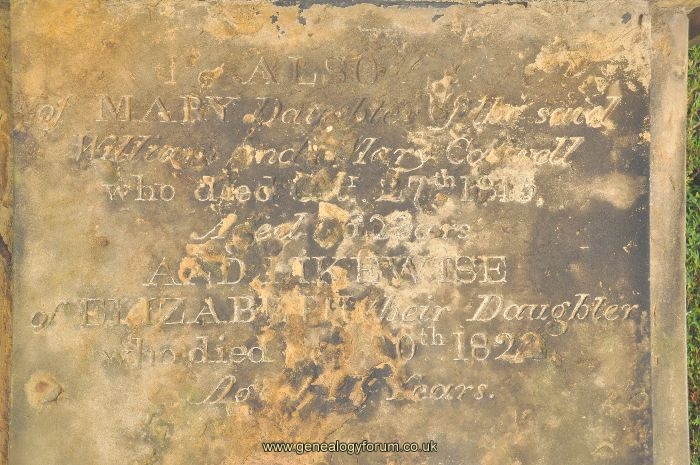 ALSO
of MARY Daughter of the said
William And Mary
who died 27th
Aged Years
AND LIKEWISE
of ELIZABETH their Daughter
who died 0th 1822
Years.
www.genealogyforum.co.uk